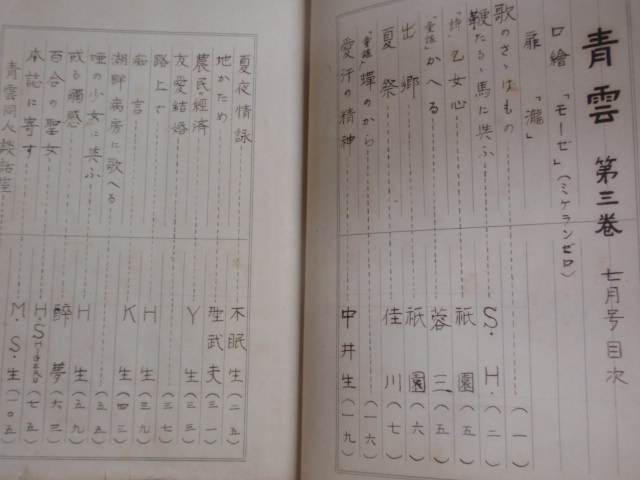 青雲 第三巻 七月号目次
口繪 「モーゼ」(ミケランゼロ)
扉 「瀧」
歌のさゝげもの (一)
鞭たるゝ馬に與ふ S.H. (二)
「詩」乙女心 祇園 (五)
「童謡」かへる 蓉三 (五)
出郷 祇園 (六)
夏祭 佳川 (七)
「童謡」蟬のから (一六)
愛汗の精神 中井生 (一九)
夏夜情詠 不眠生 (二五)
地かため 型武夫 (三一)
農民の經済 Y生 (三三)
友愛結婚 (三七)
路上で H生 (三九)
言 K生 (四三)
湖畔病房に歌へる
唖の少女に與ふ (五五)
或る觸感 H生 (五九)
百合の聖女 醉夢 (六三)
本誌に寄す H SHIGERU (七五)
青雲同人談話室 M.S.生 (一〇五)